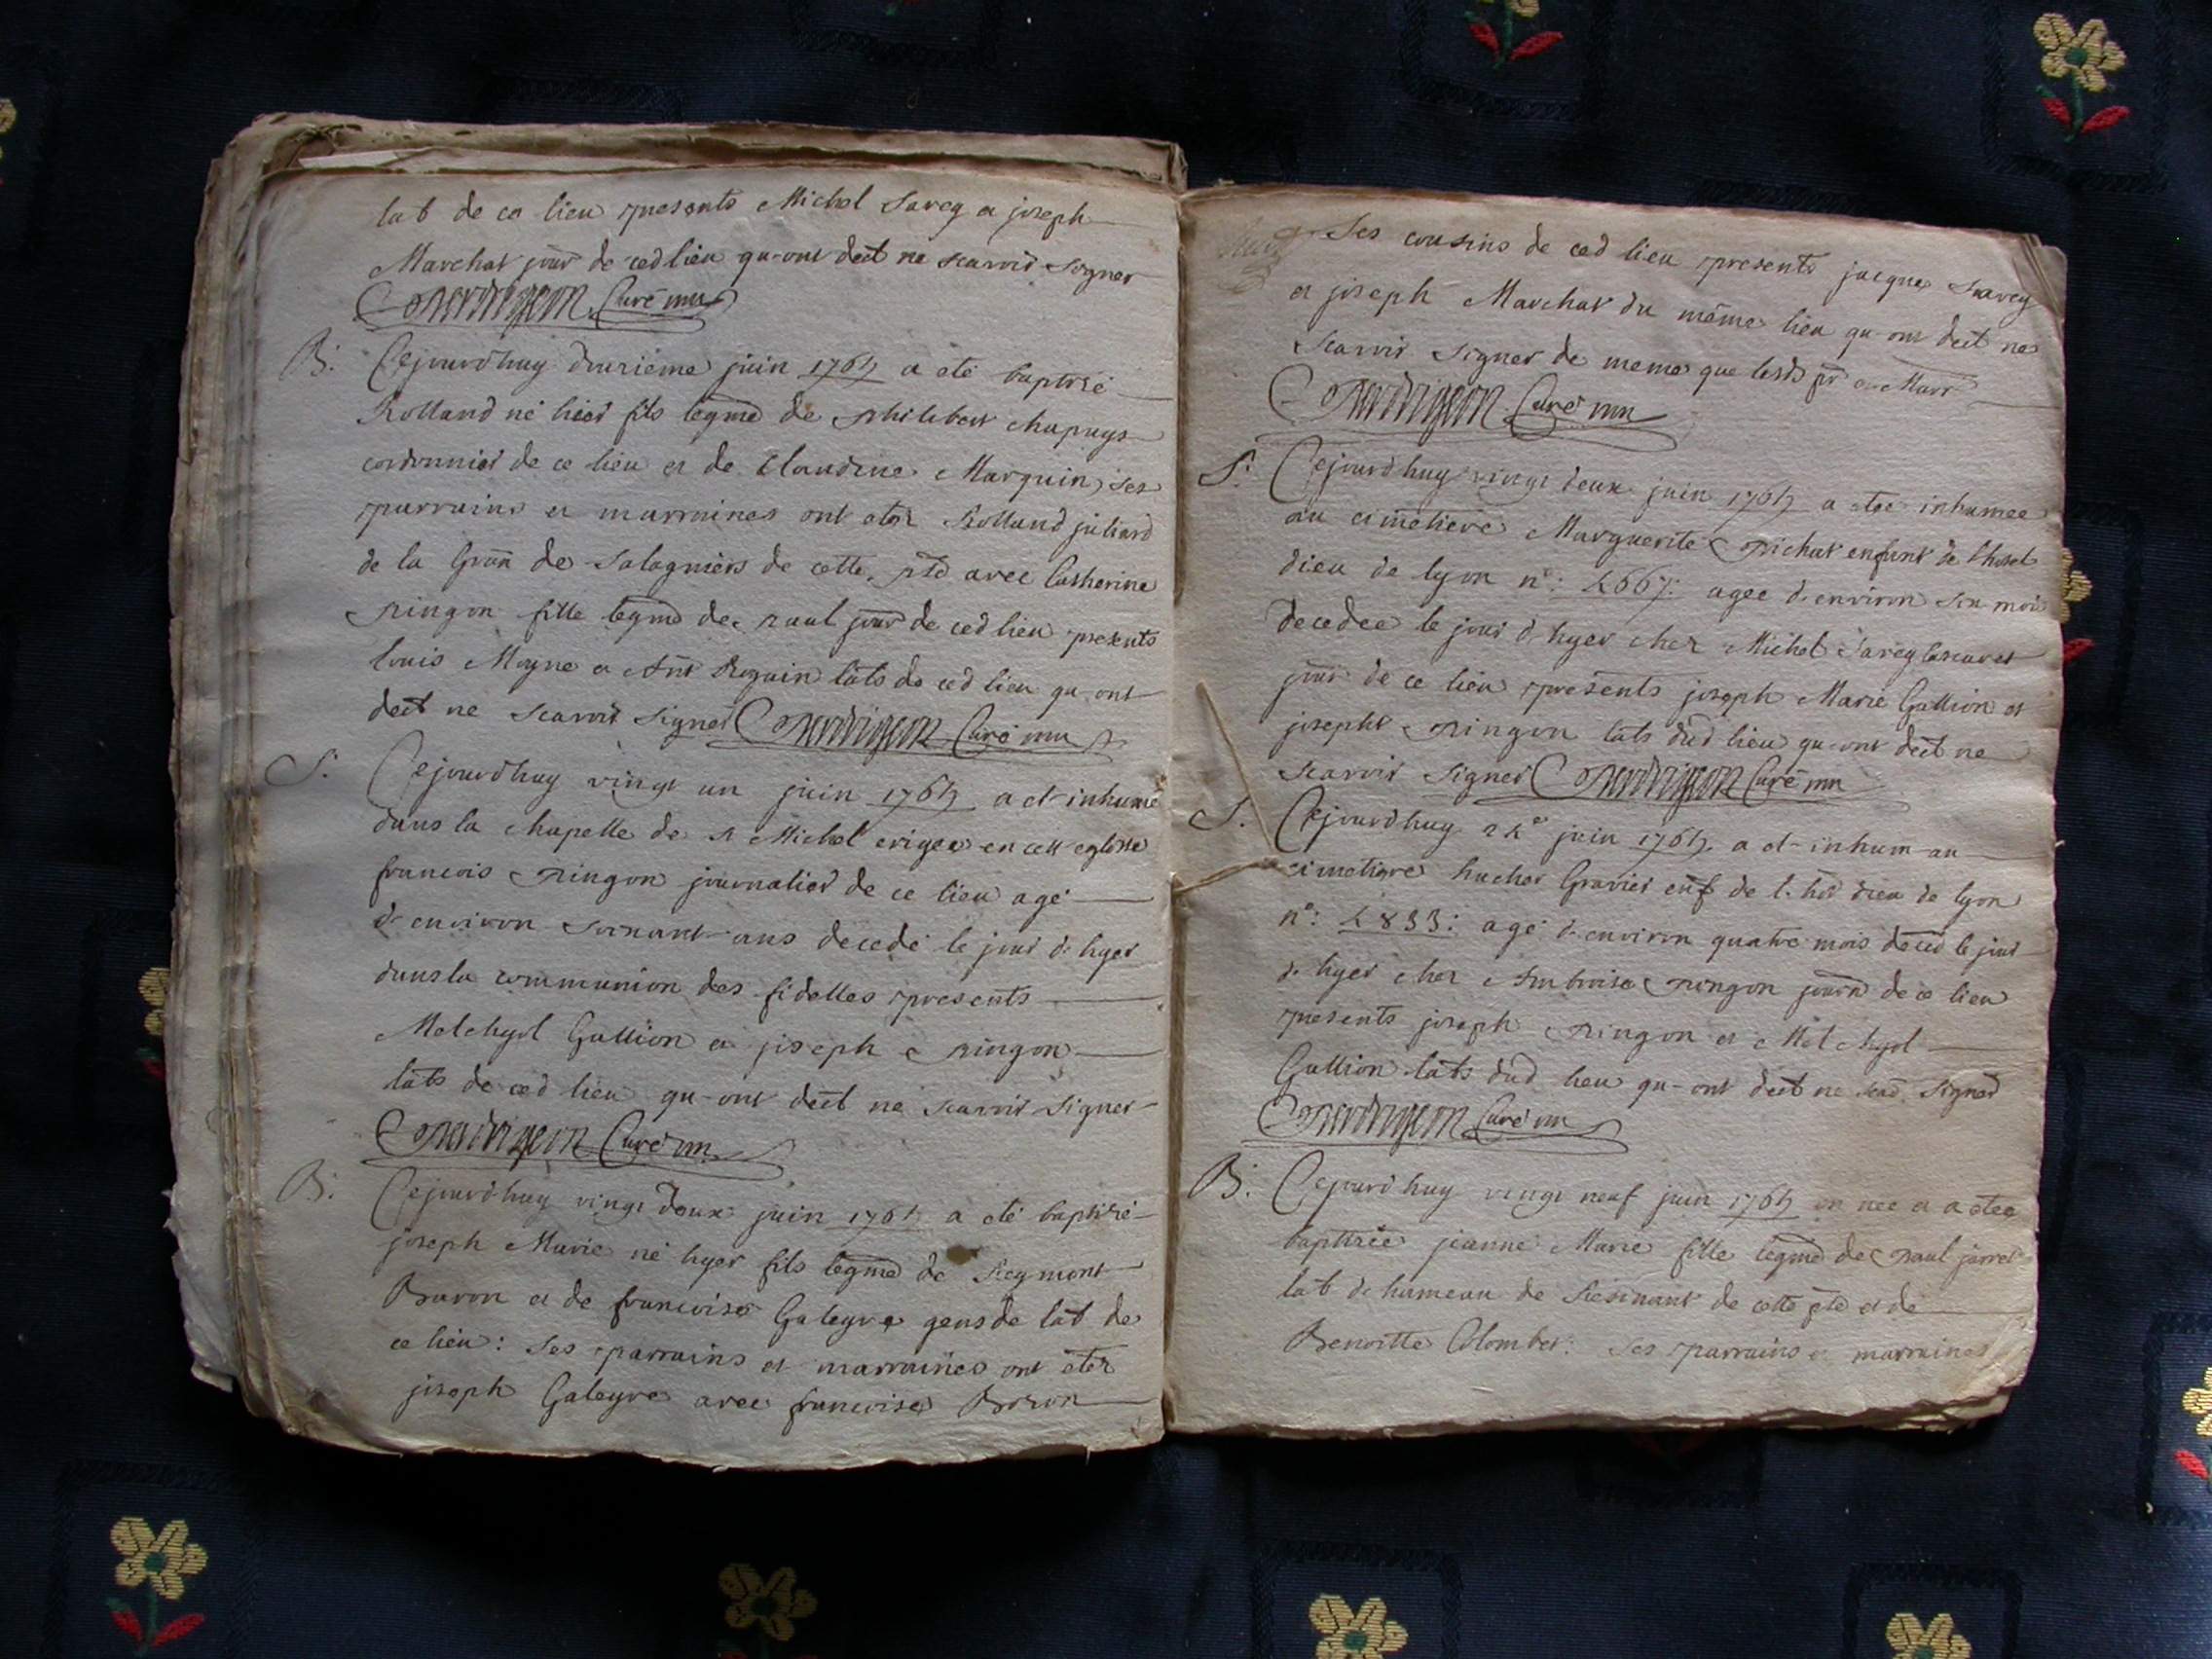 lab de ce lieu presents Michel Sarcy et joseph
Marchat jour de ced lieu qu-ont dect ne scavoir signer
Perdrigeon Curé
B. Cejourdhuy douzieme juin 1765 a eté baptisé
Rolland né hier fils legme de Philibert chapuys
cordonnier de ce lieu et de Claudine Marquin, ses
parrains et marraines ont etez Rolland juliard
de la de Salagniers de cette pse avec Catherine
Pingon fille legme de Paul jour de ced lieu presents
louis Moyne et Ant Roguin labs de ced lieu qu-ont
dect ne scavoir signer Perdrigeon Curé
S. Cejourdhuy vingt un juin 1765 a et inhumé
dans la chapelle de st Michel erigee en cett eglise
francois Pingon journalier de ce lieu agé
d environ soixant ans decedé le jour d hyer
dans la communion des fidelles presents
Melchyol Gullion et joseph Pingon
labs de ced lieu qu-ont dect ne scavoir signer
Perdrigeon Curé
B. Cejourdhuy vingt deux juin 1765 a eté baptisé
joseph Marie né hyer fils legme de Reymont
Buron et de francoise Galeyre gens de lab de
ce lieu: ses parrains et marraines ont etez
joseph Galeyre avec francoise Boron
Ses cousins de ced lieu presents jacques Sarcy
et joseph Marchat du même lieu qu-ont dect ne
scavoir signer de meme que lesds pr et Marr
Perdrigeon Curé
S. Cejourdhuy vingt deux juin 1765 a etee inhumee
au cimetiere Marguerite Pichat enfant de l hotel
dieu de lyon n°: 4667: agee d environ six mois
decedee le jour d hyer chez Michel Sarcy
jour de ce lieu presents joseph Marie Gullion et
joseph Pingon labs dud lieu qu-ont dect ne
scavoir signer Perdrigeon Curé
S. Cejourdhuy 24e juin 1765 a et inhum au
cimetiere Gravier enf de l. hot dieu de lyon
n°: 4833: agé d environ quatre mois deced le jour
d hyer chez Ambroise Pingon journ de ce lieu
presents joseph Pingon et Melchyol
Gullion labs dud lieu qu-ont dect ne scav. signer
Perdrigeon Curé
B. Cejourdhuy vingt neuf juin 1765 en nee et a etee
baptisée jeanne Marie fille legme de Paul
lab d hameau de de cette pse et de
Benoitte Colombet: ses parrains et marraines